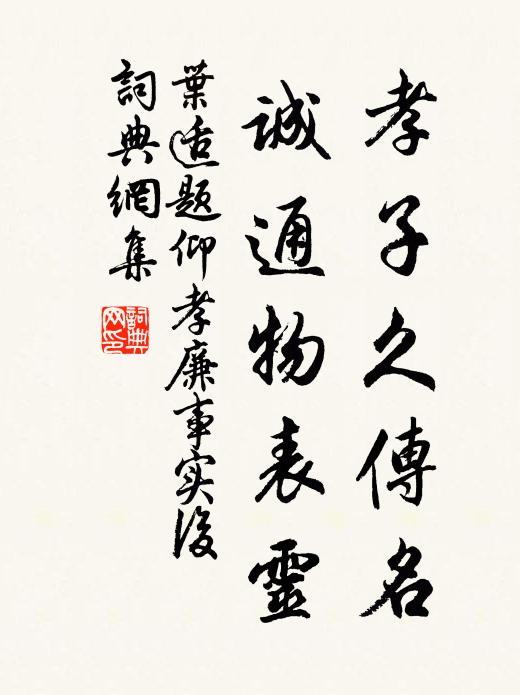 孝子久傳名
誠通物表靈
葉适題仰孝廉事实後
詞典網集
詞典网印